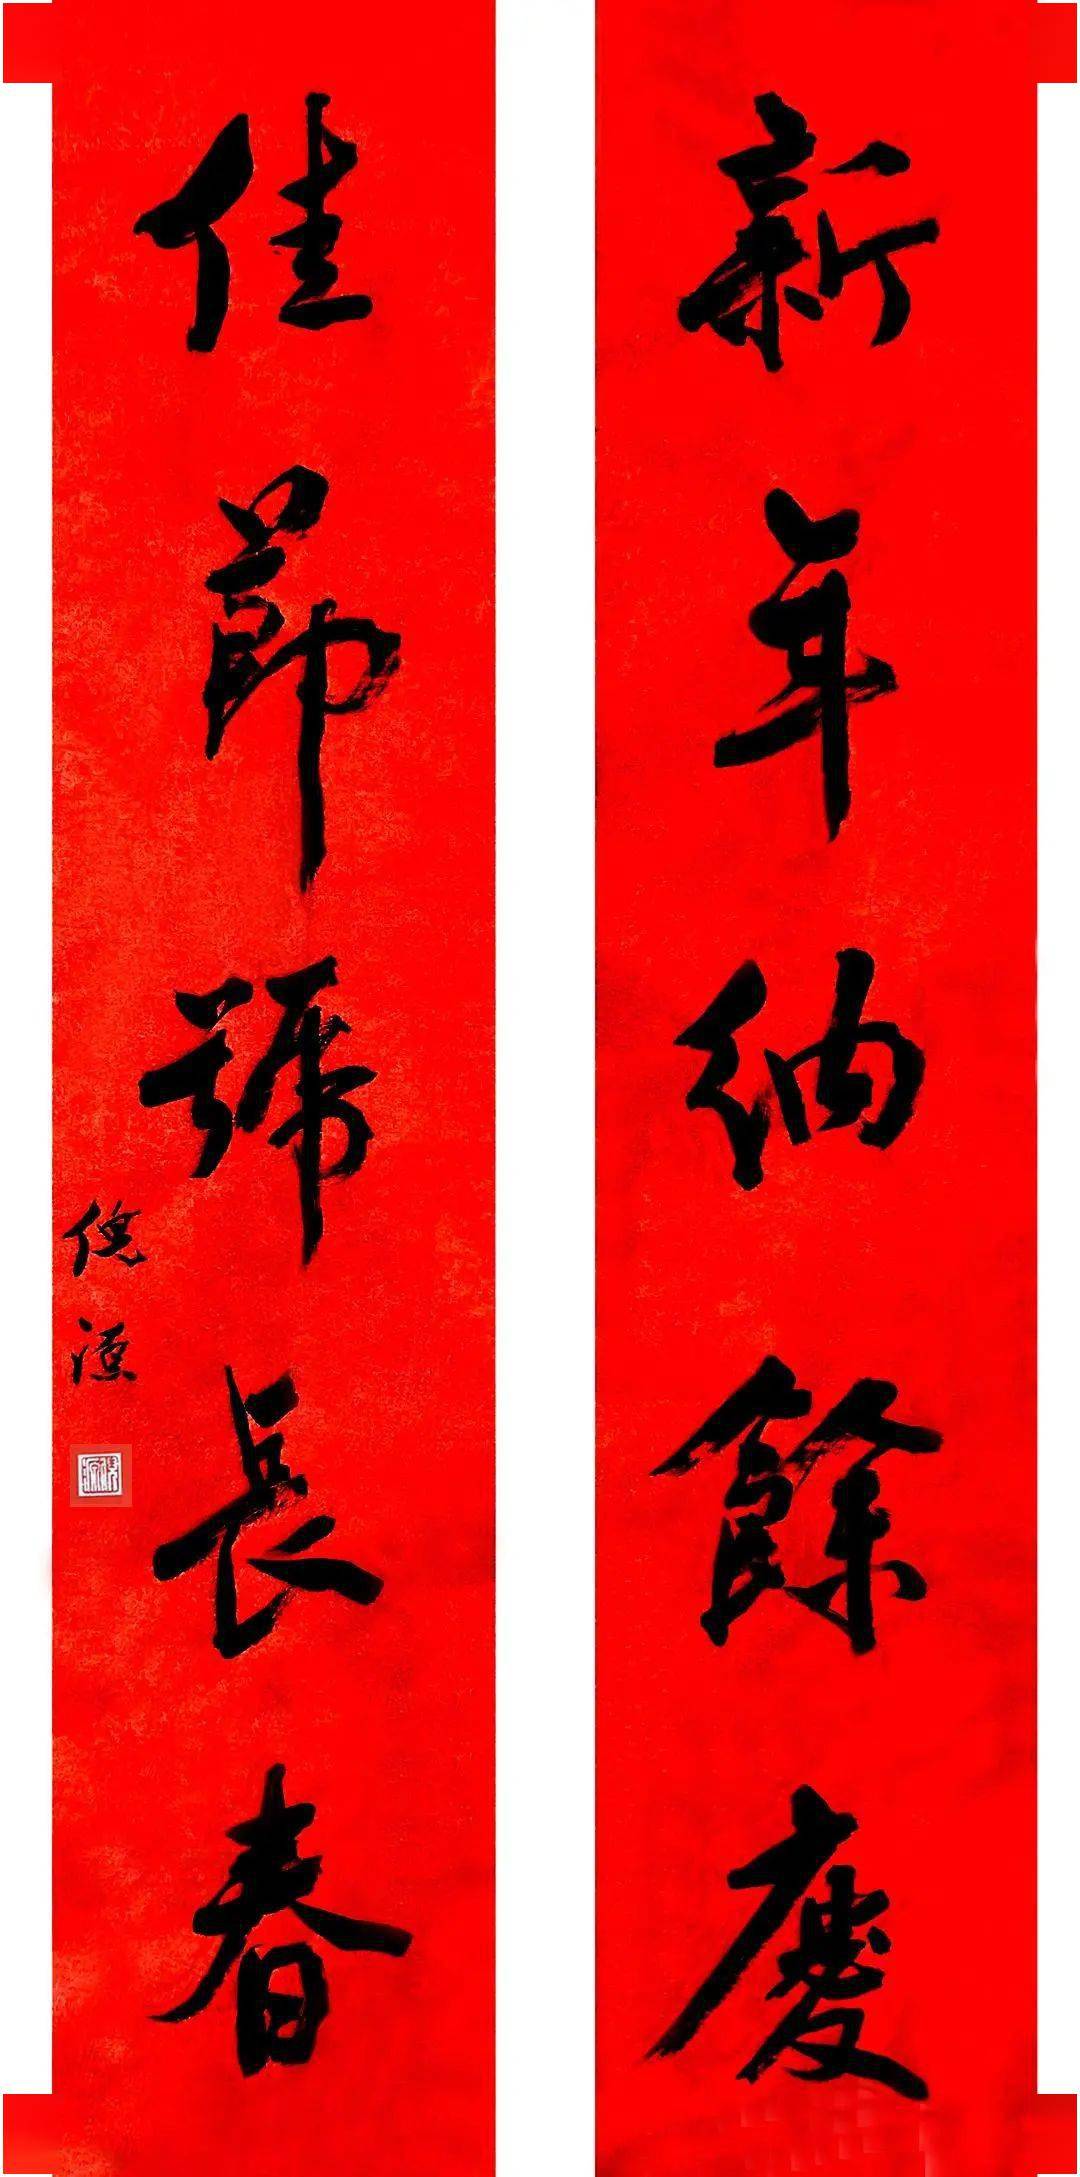 新年納餘慶
佳節號長春
倪源